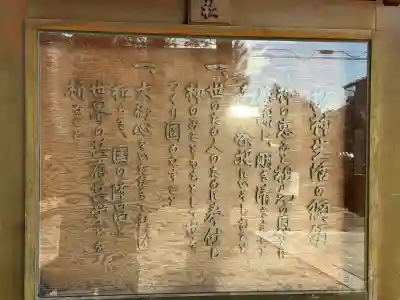 社
敬神生活の綱領
一、神の恵みと祖先の恩とに
感謝し明き清きまことを
祭祀にいそしむこと
一、世のため人のために奉仕し
神のみこともちとして世を
つくり固め成すこと
一、大御心をいただきて
和らぎ国の隆昌と
世界の共存共栄とを
祈ること